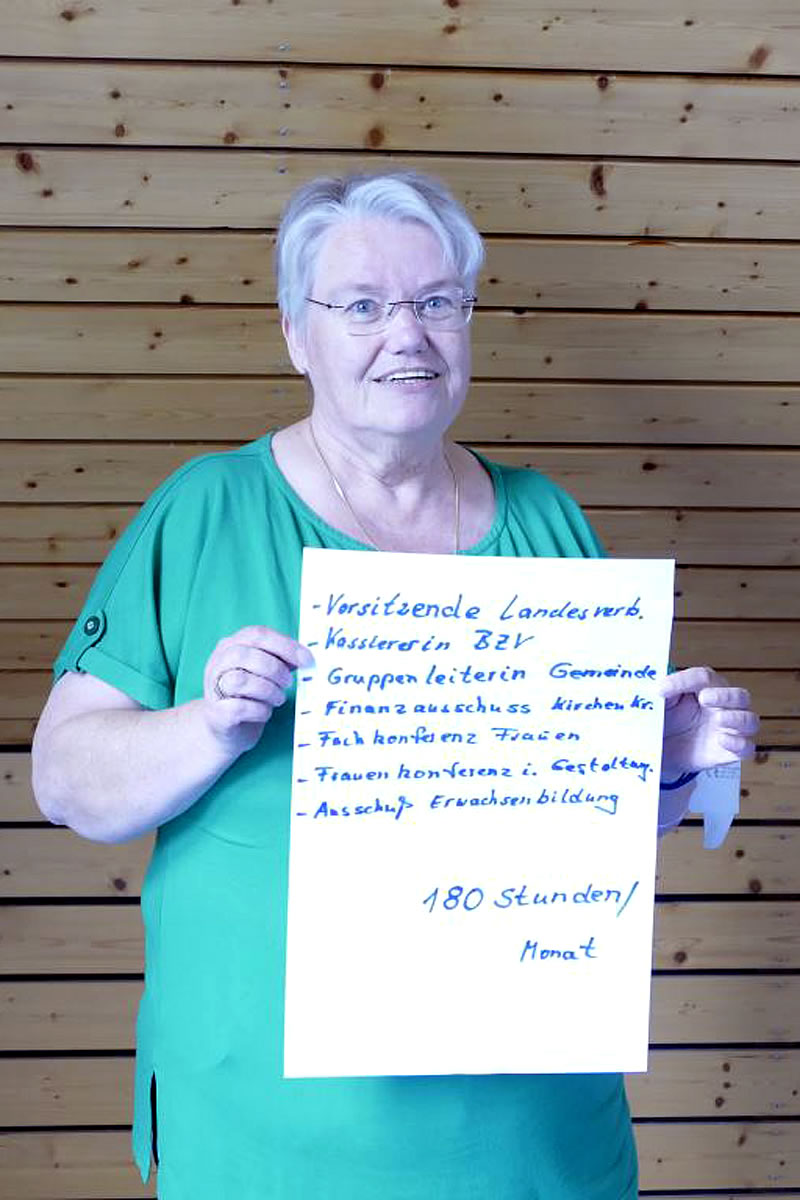 - Vorsitzende Landesverb.
- Kassiererin BZV
- Gruppenleiterin Gemeinde
- Finanzausschuss Kirchenkr.
- Fachkonferenz Frauen
- Frauenkonferenz i. Gestaltug.
- Ausschuß Erwachsenbildung
180 Stunden/
Monat